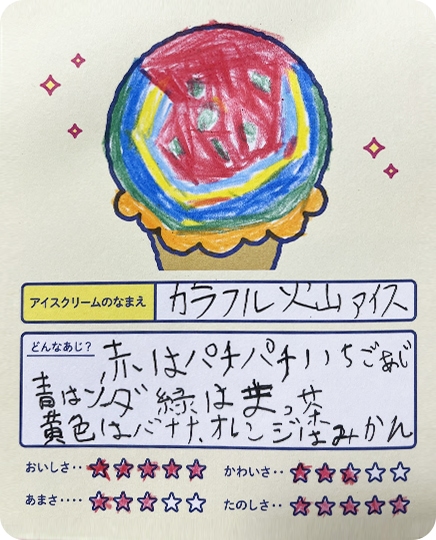 アイスクリームのなまえ カラフル火山アイス
どんなあじ? 赤はパチパチいちごあじ
青はソーダ 緑はまっ茶
黄色はバナナ、オレンジはみかん
おいしさ‥ かわいさ‥
あまさ‥‥ たのしさ‥